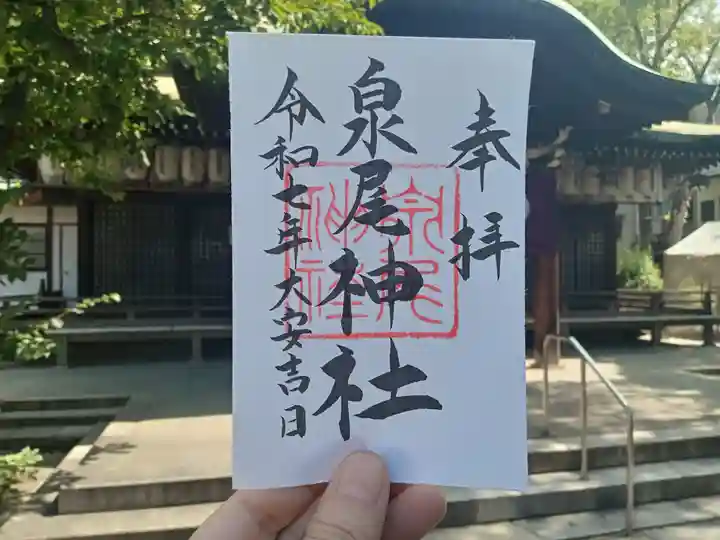 奉拝
泉尾神社
令和七年大安吉日
泉尾
神社